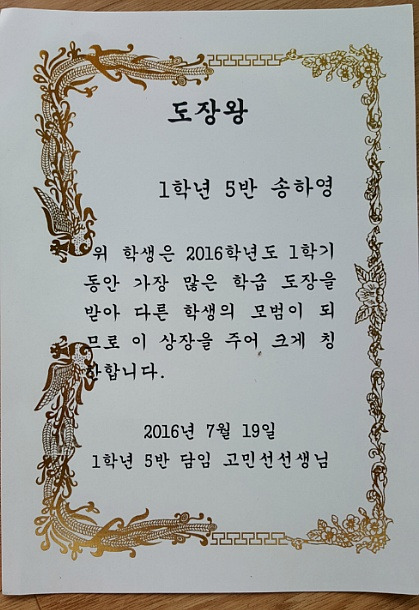 도장왕
1학년 5반 송하영
위 학생은 2016학년도 1학기
동안 가장 많은 학급 도장을
받아 다른 학생의 모범이 되
므로 이 상장을 주어 크게 칭
찬합니다.
2016년 7월 19일
1학년 5반 담임 고민선선생님